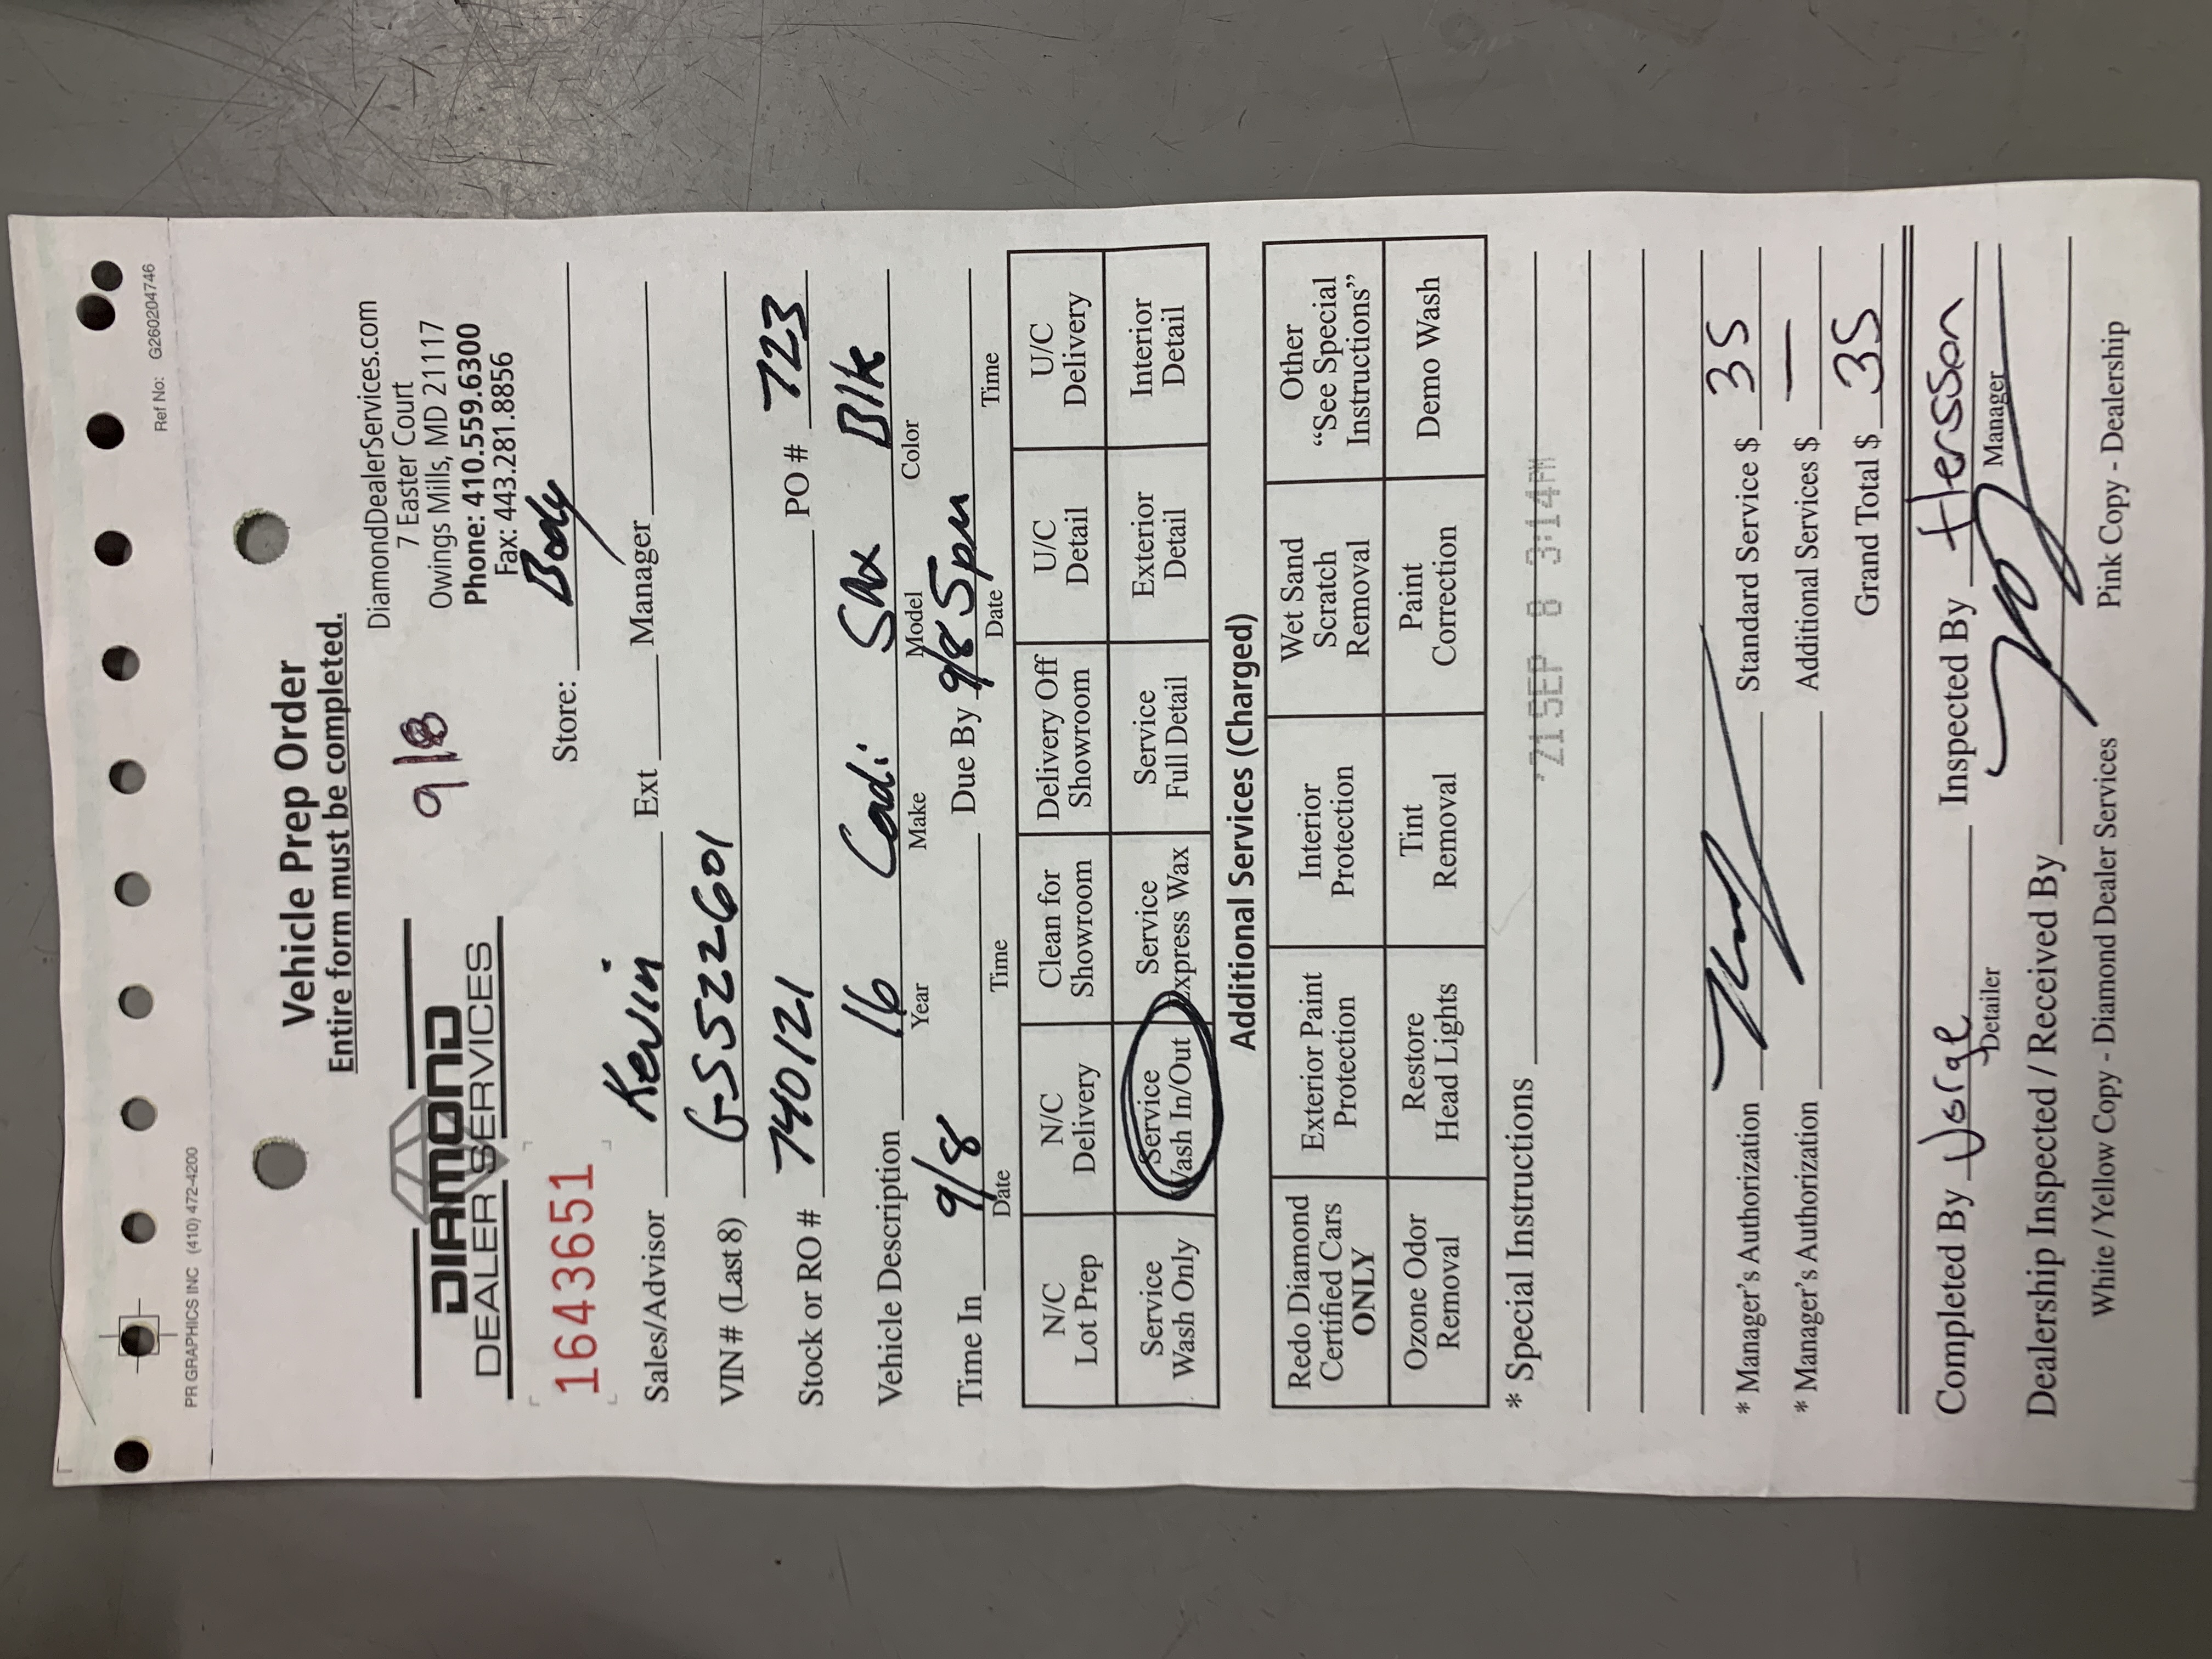 PR GRAPHICS INC (410) 472-4200 Ref No: G260204746
Vehicle Prep Order
Entire form must be completed.
DIAMOND
DEALER SERVICES
DiamondDealerServices.com
7 Easter Court
Owings Mills, MD 21117
Phone: 410.559.6300
Fax: 443.281.8856
9/8
1643651
Store: Body
Sales/Advisor Kevin Ext Manager
VIN # (Last 8) G5522601
Stock or RO # 740121 PO # 723
Vehicle Description 16 Cadi Blk
Year Make Model Color
Time In 9/8 Due By 9/8 5pm
Date Time Date Time
N/C Lot Prep
N/C Delivery
Clean for Showroom
Delivery Off Showroom
U/C Detail
U/C Delivery
Service Wash Only
Service Wash In/Out
Service Express Wax
Service Full Detail
Exterior Detail
Interior Detail
Additional Services (Charged)
Redo Diamond Certified Cars ONLY
Exterior Paint Protection
Interior Protection
Wet Sand Scratch Removal
Other "See Special Instructions"
Ozone Odor Removal
Restore Head Lights
Tint Removal
Paint Correction
Demo Wash
* Special Instructions
'21 SEP 8 3:14PM
* Manager's Authorization Standard Service $ 35
* Manager's Authorization Additional Services $ —
Grand Total $ 35
Completed By Jorge Inspected By Hersson
Detailer Manager
Dealership Inspected / Received By
White / Yellow Copy - Diamond Dealer Services Pink Copy - Dealership